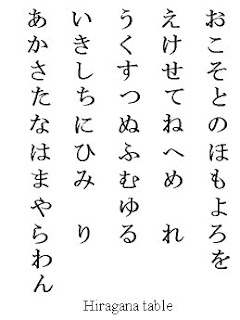 あかさたなはまやらわん
いきしちにひみ り
うくすつぬふむゆる
えけせてねへめ れ
おこそとのほもよろを
Hiragana table